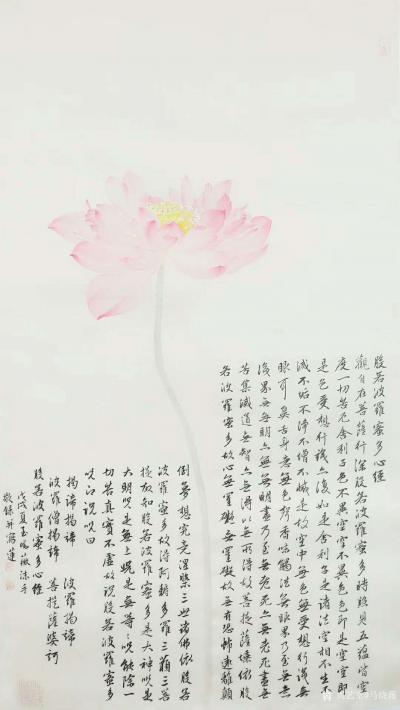 般若波羅蜜多心經
觀自在菩薩行深般若波羅蜜多時照見五蘊皆空
度一切苦厄舍利子色不異空空不異色色即是空空即
是色受想行識亦復如是舍利子是諸法空相不生不
滅不垢不淨不增不減是故空中無色無受想行識無
眼耳鼻舌身意無色聲香味觸法無眼界乃至無意
識界無無明亦無無明盡乃至無老死亦無老死盡無
苦集滅道無智亦無得以無所得故菩提薩埵依般
若波羅蜜多故心無罣礙無罣礙故無有恐怖遠離顛
倒夢想究竟涅槃三世諸佛依般若
波羅蜜多故得阿耨多羅三藐三菩
提故知般若波羅蜜多是大神咒是
大明咒是無上咒是無等〻咒能除一
切苦真實不虛故說般若波羅蜜多
咒即說咒曰
揭諦揭諦 波羅揭諦
波羅僧揭諦 菩提薩婆訶
般若波羅蜜多心經
戊戌夏 薇沐手
敬錄并寫蓮
马晓薇